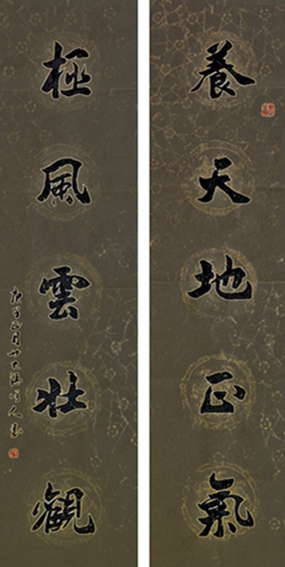 養天地正氣
極風雲壯觀